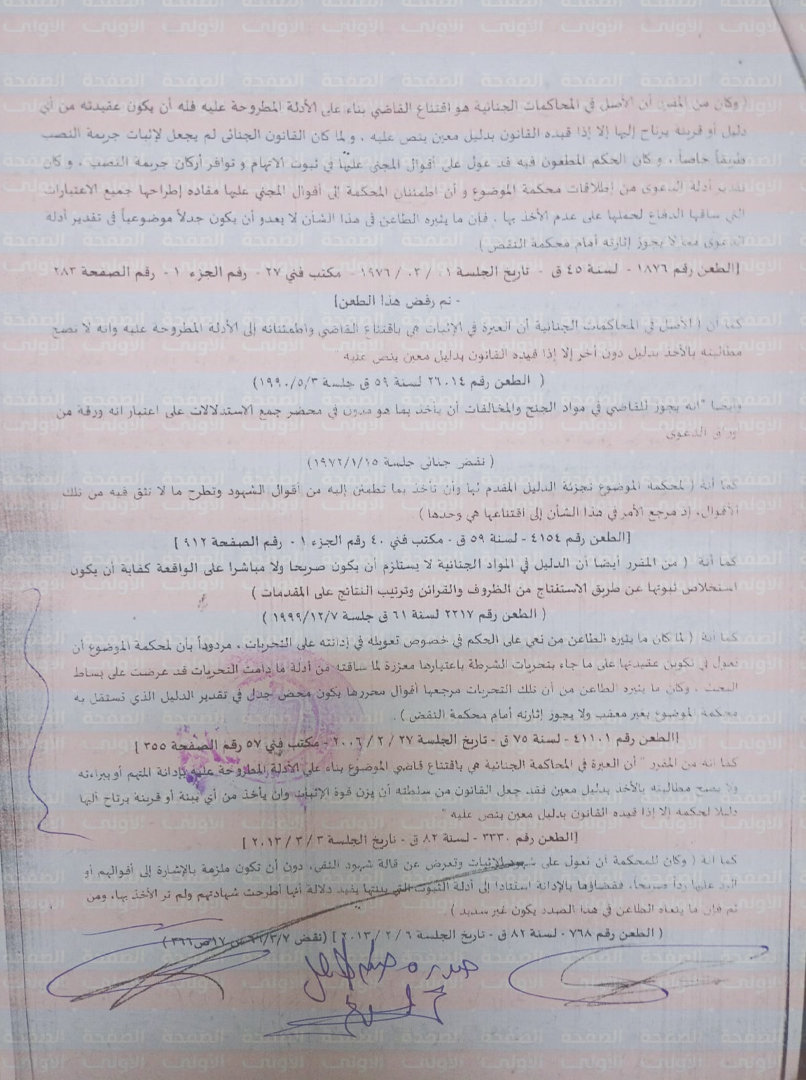 ( وكان من المقرر أن الأصل في المحاكمات الجنائية هو اقتناع القاضي بناء على الأدلة المطروحة عليه فله أن يكون عقيدته من أي
دليل أو قرينة يرتاح إليها إلا إذا قيده القانون بدليل معين ينص عليه ، ولما كان القانون الجنائى لم يجعل لإثبات جريمة النصب
طريقاً خاصاً ، وكان الحكم المطعون فيه قد عول على أقوال المجنى عليها في ثبوت الاتهام و توافر أركان جريمة النصب ، وكان
تقدير أدلة الدعوى من إطلاقات محكمة الموضوع و أن اطمئنان المحكمة إلى أقوال المجني عليها مفاده إطراحها جميع الاعتبارات
التي ساقها الدفاع لحملها على عدم الأخذ بها ، فإن ما يثيره الطاعن فى هذا الشأن لا يعدو أن يكون جدلاً موضوعياً في تقدير أدلة
الدعوى مما لا يجوز إثارته أمام محكمة النقض )
[الطعن رقم ١٨٧٦ - لسنة ٤٥ ق - تاريخ الجلسة ٠١ / ٠٣ / ١٩٧٦ - مكتب فني ٢٧ - رقم الجزء ١ - رقم الصفحة ٢٨٣
- تم رفض هذا الطعن]
كما أن ( الأصل في المحاكمات الجنائية أن العبرة في الإثبات هي باقتناع القاضي واطمئنانه إلى الأدلة المطروحة عليه وانه لا تصح
مطالبته بالأخذ بدليل دون أخر إلا إذا قيده القانون بدليل معين ينص عليه "
( الطعن رقم ٢٦٠١٤ لسنة ٥٩ ق جلسة ١٩٩٠/٥/٣)
وأيضا "انه يجوز للقاضي في مواد الجنح والمخالفات أن يأخذ بما هو مدون في محضر جمع الاستدلالات على اعتبار انه ورقة من
أوراق الدعوى
( نقض جنائى جلسة ١٩٧٢/١/١٥)
كما أنه ( لمحكمة الموضوع تجزئة الدليل المقدم لها وأن تأخذ بما تطمئن إليه من أقوال الشهود وتطرح ما لا تثق فيه من تلك
الأقوال، إذ مرجع الأمر في هذا الشأن إلى اقتناعها هي وحدها )
[الطعن رقم ٤١٥٤ - لسنة ٥٩ ق - مكتب فني ٤٠ رقم الجزء ١ - رقم الصفحة ٩١٢ ]
كما أنه ( من المقرر أيضا أن الدليل في المواد الجنائية لا يستلزم أن يكون صريحا ولا مباشرا على الواقعة كفاية أن يكون
استخلاص ثبوتها عن طريق الاستنتاج من الظروف والقرائن وترتيب النتائج على المقدمات )
( الطعن رقم ٢٢١٧ لسنة ٦١ ق جلسة ١٩٩٩/١٢/٧ )
كما أنه ( لما كان ما يثيره الطاعن من نعي على الحكم في خصوص تعويله في إدانته على التحريات ، مردوداً بأن لمحكمة الموضوع أن
تعول في تكوين عقيدتها على ما جاء بتحريات الشرطة باعتبارها معززة لما ساقته من أدلة ما دامت التحريات قد عرضت على بساط
البحث ، وكان ما يثيره الطاعن من أن تلك التحريات مرجعها أقوال محررها يكون محض جدل في تقدير الدليل الذي تستقل به
محكمة الموضوع بغير معقب ولا يجوز إثارته أمام محكمة النقض ) .
[الطعن رقم ٤١١٠١ - لسنة ٧٥ ق - تاريخ الجلسة ٢٧ / ٢ / ٢٠٠٦ - مكتب فني ٥٧ رقم الصفحة ٣٥٥ ]
كما انه من المقرر " أن العبرة في المحاكمة الجنائية هي باقتناع قاضي الموضوع بناء على الأدلة المطروحة عليه بإدانة المتهم أو ببراءته
ولا يصح مطالبته بالأخذ بدليل معين فقد جعل القانون من سلطته أن يزن قوة الإثبات وان يأخذ من أي بينة أو قرينة يرتاح أليها
دليلا لحكمه إلا إذا قيده القانون بدليل معين ينص عليه "
[الطعن رقم ٣٣٣٠ - لسنة ٨٢ ق - تاريخ الجلسة ٣ / ٣ / ٢٠١٣ ]
كما انه ( وكان للمحكمة أن تعول على شهود الإثبات وتعرض عن قالة شهود النفى، دون أن تكون ملزمة بالإشارة إلى أقوالهم أو
الرد عليها رداً صريحاً، فقضاؤها بالإدانة استنادا إلى أدلة الثبوت التي بينتها يفيد دلالة أنها أطرحت شهادتهم ولم تر الأخذ بها، ومن
ثم فإن ما ينعاه الطاعن في هذا الصدد يكون غير سديد ) .
( الطعن رقم ٧٦٨ - لسنة ٨٢ ق - تاريخ الجلسة ٦ / ٢ / ٢٠١٣ ] (نقض ٦٦/٣/٧ س ١٧ ص ٣٦٦ )